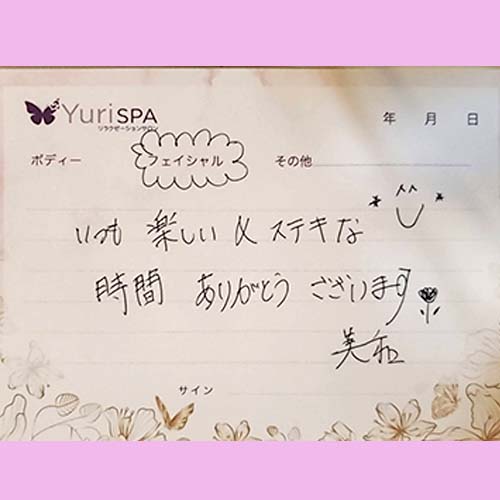 YuriSPA
リラクゼーションサロン
年 月 日
ボディー フェイシャル その他
いつも 楽しい & ステキな
時間 ありがとう ございます
美和
サイン